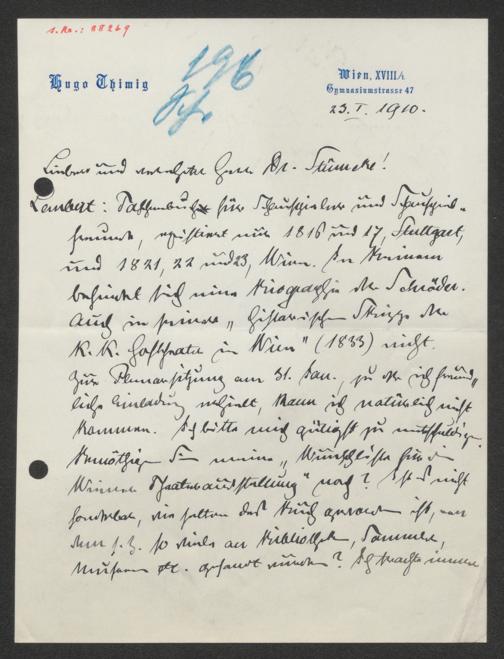 Hugo Thimig
Wien, XVIII/1.
Gymnasiumstrasse 47
23. I. 1910.
196
Lieber und verehrter Herr Dr. Stümcke!
Lembert: Taschenbuch für Schauspieler und Schauspiel-
freunde, existiert nur 1816 und 17, Stuttgart,
und 1821, 22 und 23, Wien. In keinem
befindet sich eine Biographie der Schröder.
Auch in seiner „Historischen Skizze der
K. K. Hoftheater in Wien" (1833) nicht.
Zur Plenarsitzung am 31. Jan., zu der ich freund-
liche Einladung erhielt, kann ich natürlich nicht
kommen. Ich bitte mich gütigst zu entschuldigen.
Benöthigen Sie meine „Wunschliste für die
Wiener Theaterausstellung" noch? Ist es nicht
sonderbar, wie selten das Buch geworden ist, von
dem s. Z. so viele an Bibliotheken, Sammler,
Museen etc. gesandt wurden? Ich machte immer